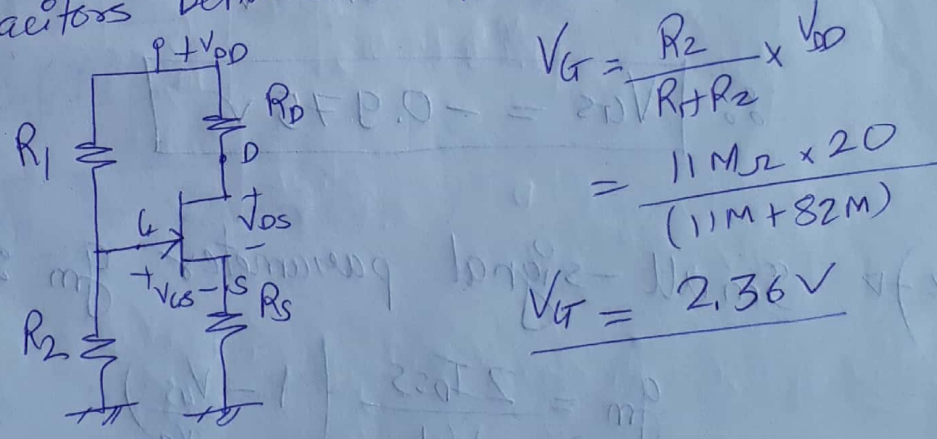 acitors
+VDD
R1
RD
D
G
VDS
-
+VGS - S
RS
R2
VG = R2 / R1+R2 × VDD
= 11MΩ × 20 / (11M + 82M)
VG = 2.36V